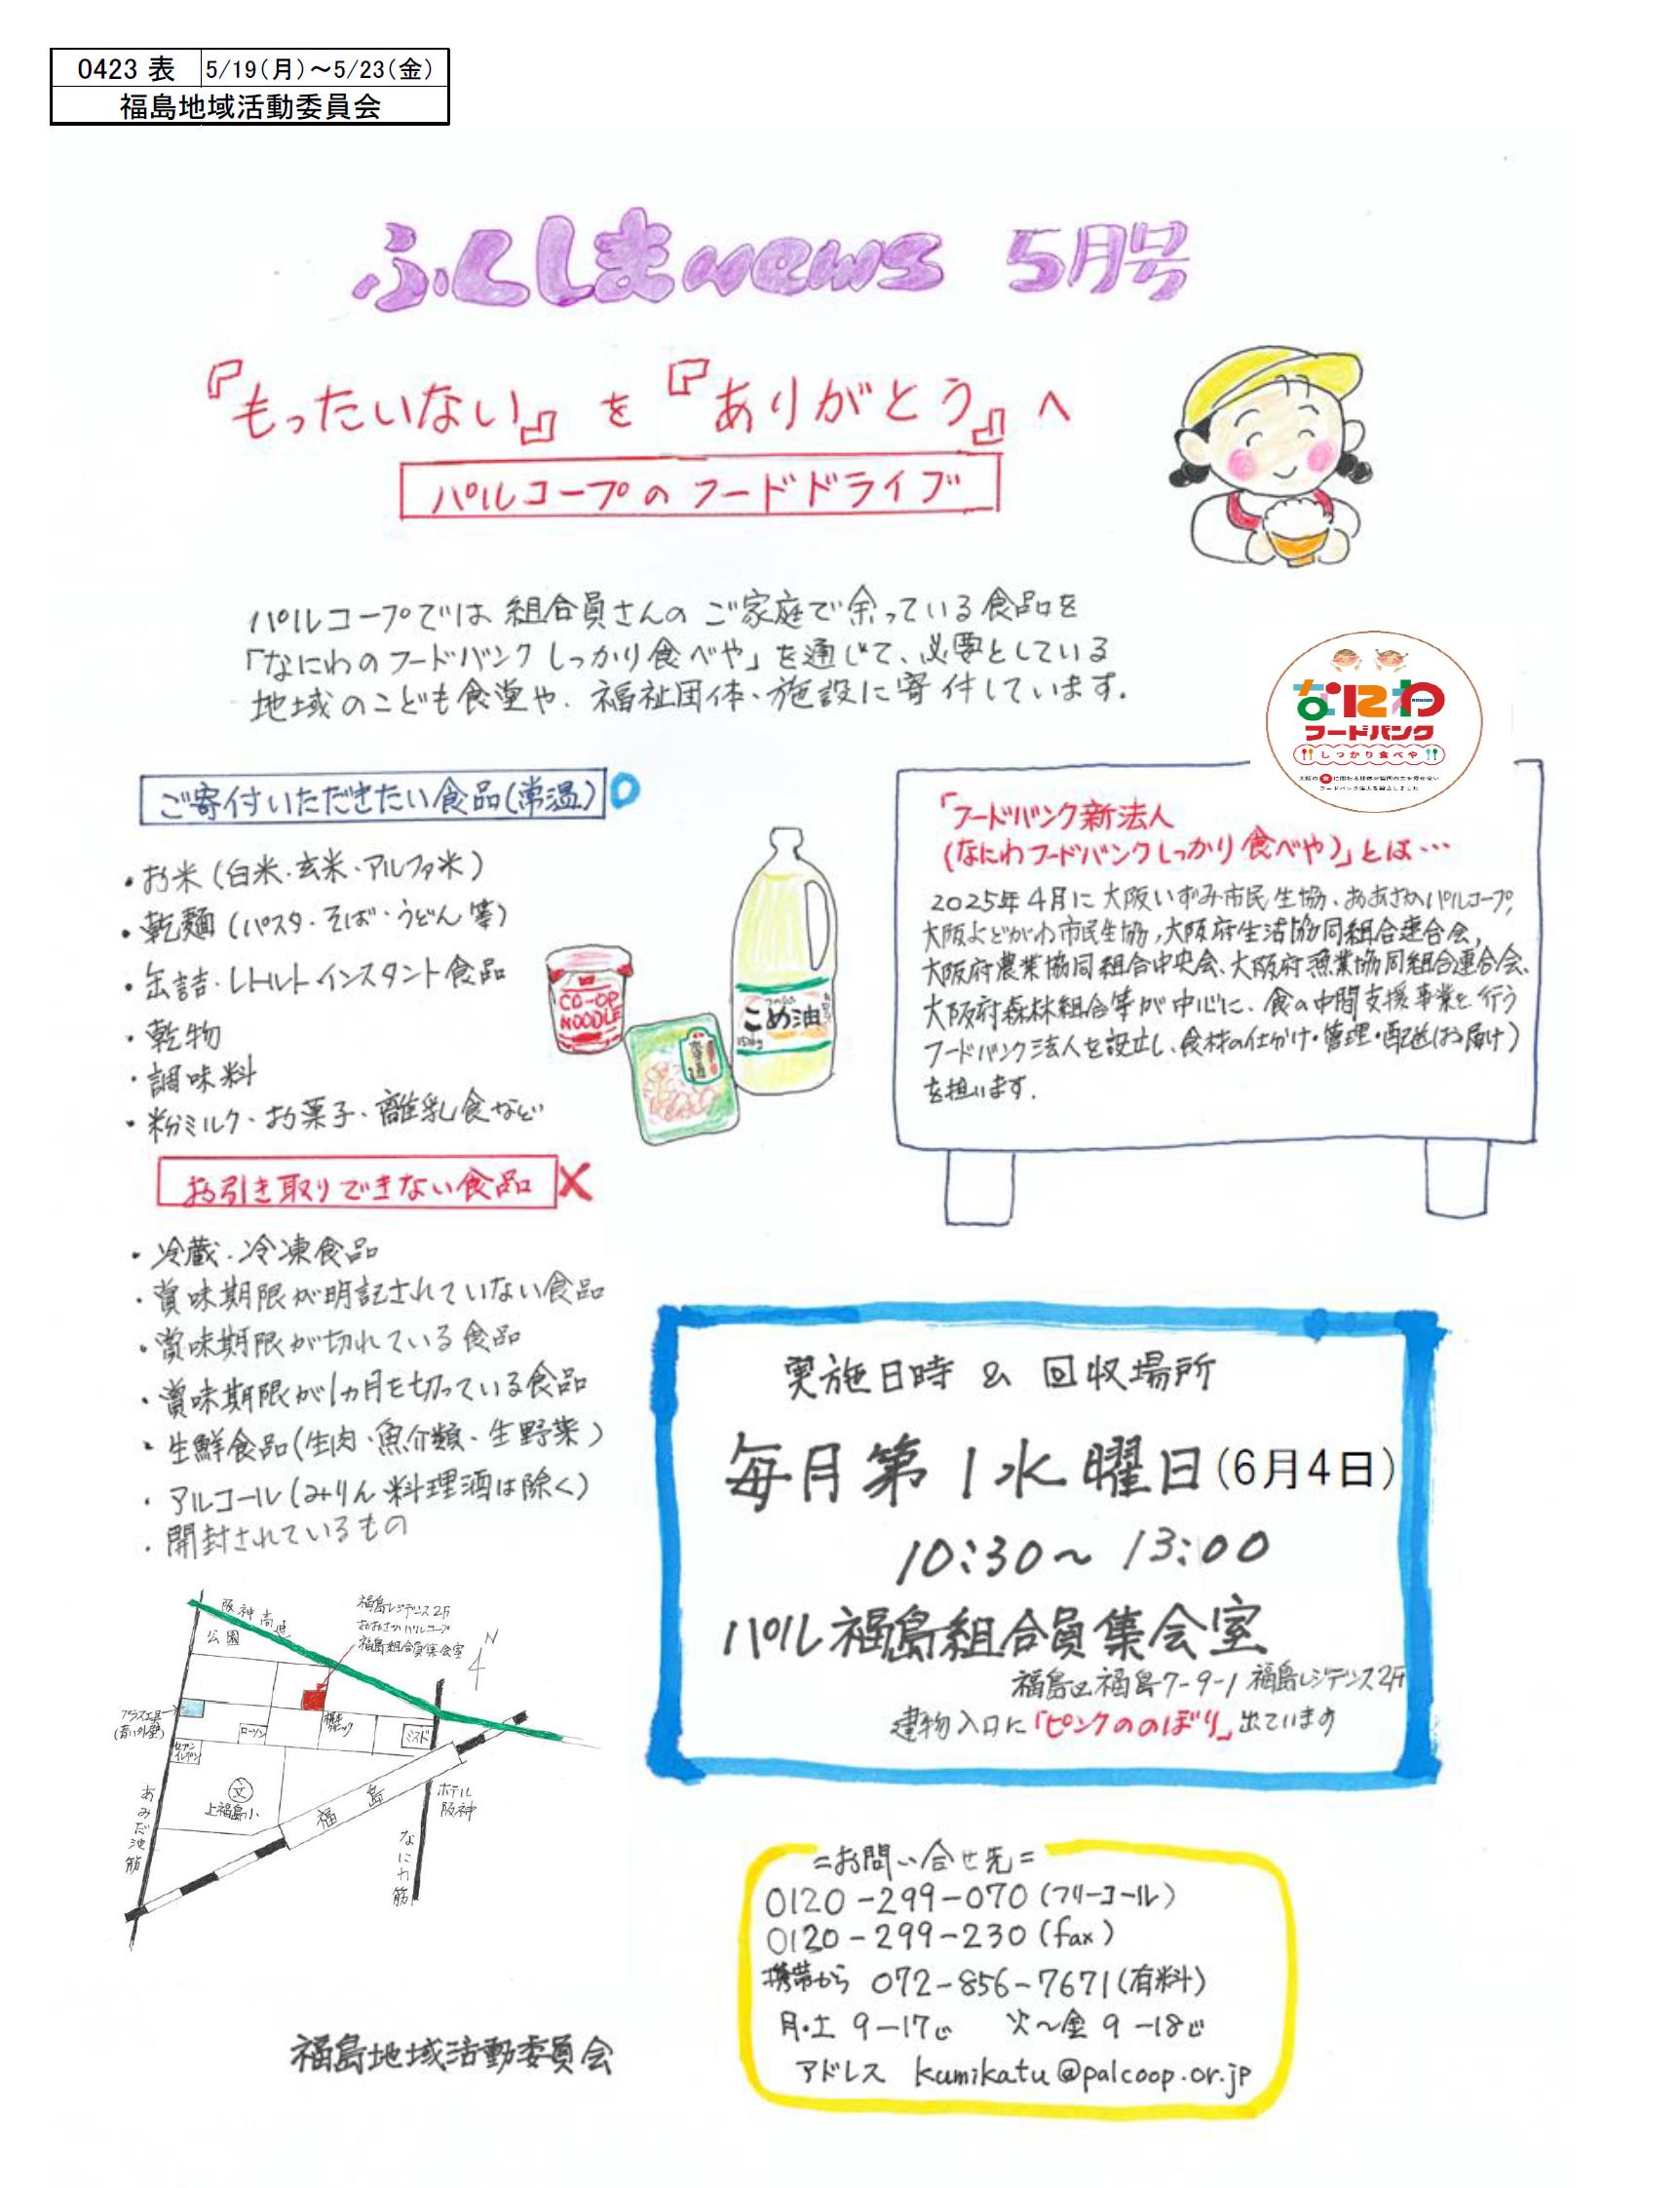 0423 表 5/19(月)～5/23(金)
福島地域活動委員会
ふくしまnews 5月号
『もったいない』を『ありがとう』へ
パルコープのフードドライブ
パルコープでは組合員さんのご家庭で余っている食品を
「なにわのフードバンクしっかり食べや」を通じて、必要としている
地域のこども食堂や、福祉団体・施設に寄付しています。
なにわ
フードバンク
しっかり食べや
ご寄付いただきたい食品(常温)○
・お米(白米・玄米・アルファ米)
・乾麺(パスタ・そば・うどん等)
・缶詰・レトルト・インスタント食品
・乾物
・調味料
・粉ミルク・お菓子・離乳食など
CO-OP
NOODLE
こめ油
「フードバンク新法人
(なにわフードバンクしっかり食べや)」とは…
2025年4月に大阪いずみ市民生協、おおさかパルコープ、
大阪よどがわ市民生協、大阪府生活協同組合連合会、
大阪府農業協同組合中央会、大阪府漁業協同組合連合会、
大阪府森林組合等が中心に、食の中間支援事業を行う
フードバンク法人を設立し、食材の仕分け・管理・配送(お届け)
を担います。
お引き取りできない食品×
・冷蔵・冷凍食品
・賞味期限が明記されていない食品
・賞味期限が切れている食品
・賞味期限が1ヵ月を切っている食品
・生鮮食品(生肉・魚介類・生野菜)
・アルコール(みりん料理酒は除く)
・開封されているもの
実施日時 & 回収場所
毎月第1水曜日(6月4日)
10:30～13:00
パル福島組合員集会室
福島区福島7-9-1 福島レジデンス2F
建物入口に「ピンクののぼり」出ています
阪神高速
公園
福島レジデンス2F
おおさかパルコープ
福島組合員集会室
N
プラス工具
(青い外壁)
ローソン
ミスド
セブン
イレブン
文
上福島小
福島
ホテル
阪神
あみだ池筋
なにわ筋
=お問い合せ先=
0120-299-070(フリーコール)
0120-299-230(fax)
携帯から 072-856-7671(有料)
月・土 9-17じ 火～金 9-18じ
アドレス kumikatu@palcoop.or.jp
福島地域活動委員会